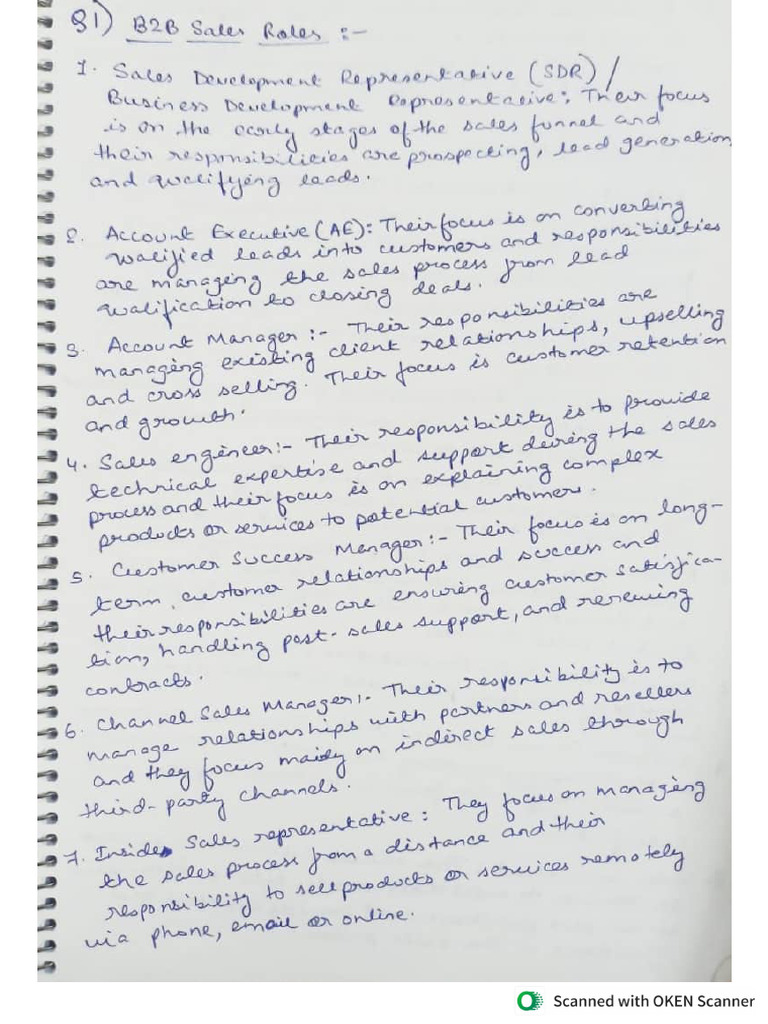 Q1) B2B Sales Roles :-
1. Sales Development Representative (SDR) /
Business Development Representative: Their focus
is on the early stages of the sales funnel and
their responsibilities are prospecting, lead generation
and qualifying leads.
2. Account Executive (AE): Their focus is on converting
qualified leads into customers and responsibilities
are managing the sales process from lead
qualification to closing deals.
3. Account Manager :- Their responsibilities are
managing existing client relationships, upselling
and cross selling. Their focus is customer retention
and growth.
4. Sales engineer:- Their responsibility is to provide
technical expertise and support during the sales
process and their focus is on explaining complex
products or services to potential customers.
5. Customer Success Manager:- Their focus is on long-
term, customer relationships and success and
their responsibilities are ensuring customer satisfica-
tion, handling post-sales support, and renewing
contracts.
6. Channel Sales Manager:- Their responsibility is to
manage relationships with partners and resellers
and they focus mainly on indirect sales through
third-party channels.
7. Inside Sales representative: They focus on managing
the sales process from a distance and their
responsibility to sell products or services remotely
via phone, email or online.
Scanned with OKEN Scanner